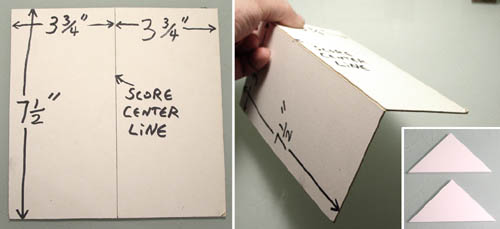 3 3/4" 3 3/4"
7 1/2"
SCORE
CENTER
LINE
SCORE
CENTER
LINE
7 1/2"